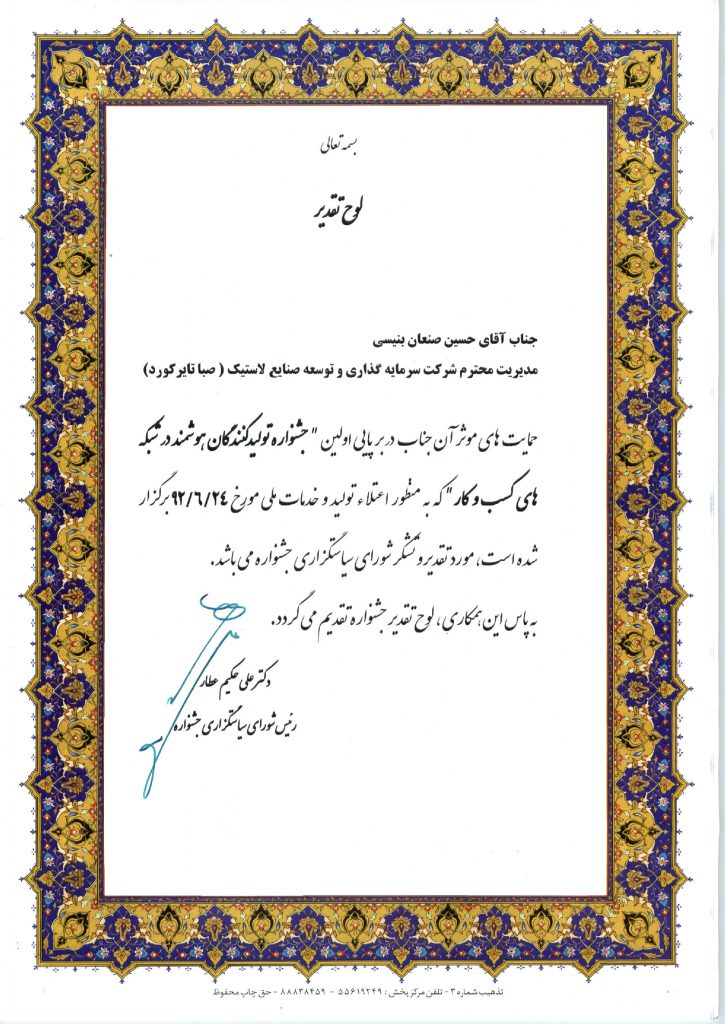 بسمه تعالی
لوح تقدیر
جناب آقای حسین صنعان بنیسی
مدیریت محترم شرکت سرمایه گذاری و توسعه صنایع لاستیک ( صبا تایر کورد)
حمایت های موثر آن جناب در برپایی اولین " جشنواره تولیدکنندگان هوشمند در شبکه
های کسب و کار" که به منظور اعتلاء تولید و خدمات ملی مورخ ۹۲/۶/۲۴ برگزار
شده است، مورد تقدیر و تشکر شورای سیاستگزاری جشنواره می باشد.
به پاس این همکاری، لوح تقدیر جشنواره تقدیم می گردد.
دکتر علی حکیم عطار
رئیس شورای سیاستگزاری جشنواره
تذهیب شماره ۳ - تلفن مرکز پخش : ۵۵۶۱۹۲۴۹ - ۸۸۸۳۸۴۵۹ - حق چاپ محفوظ